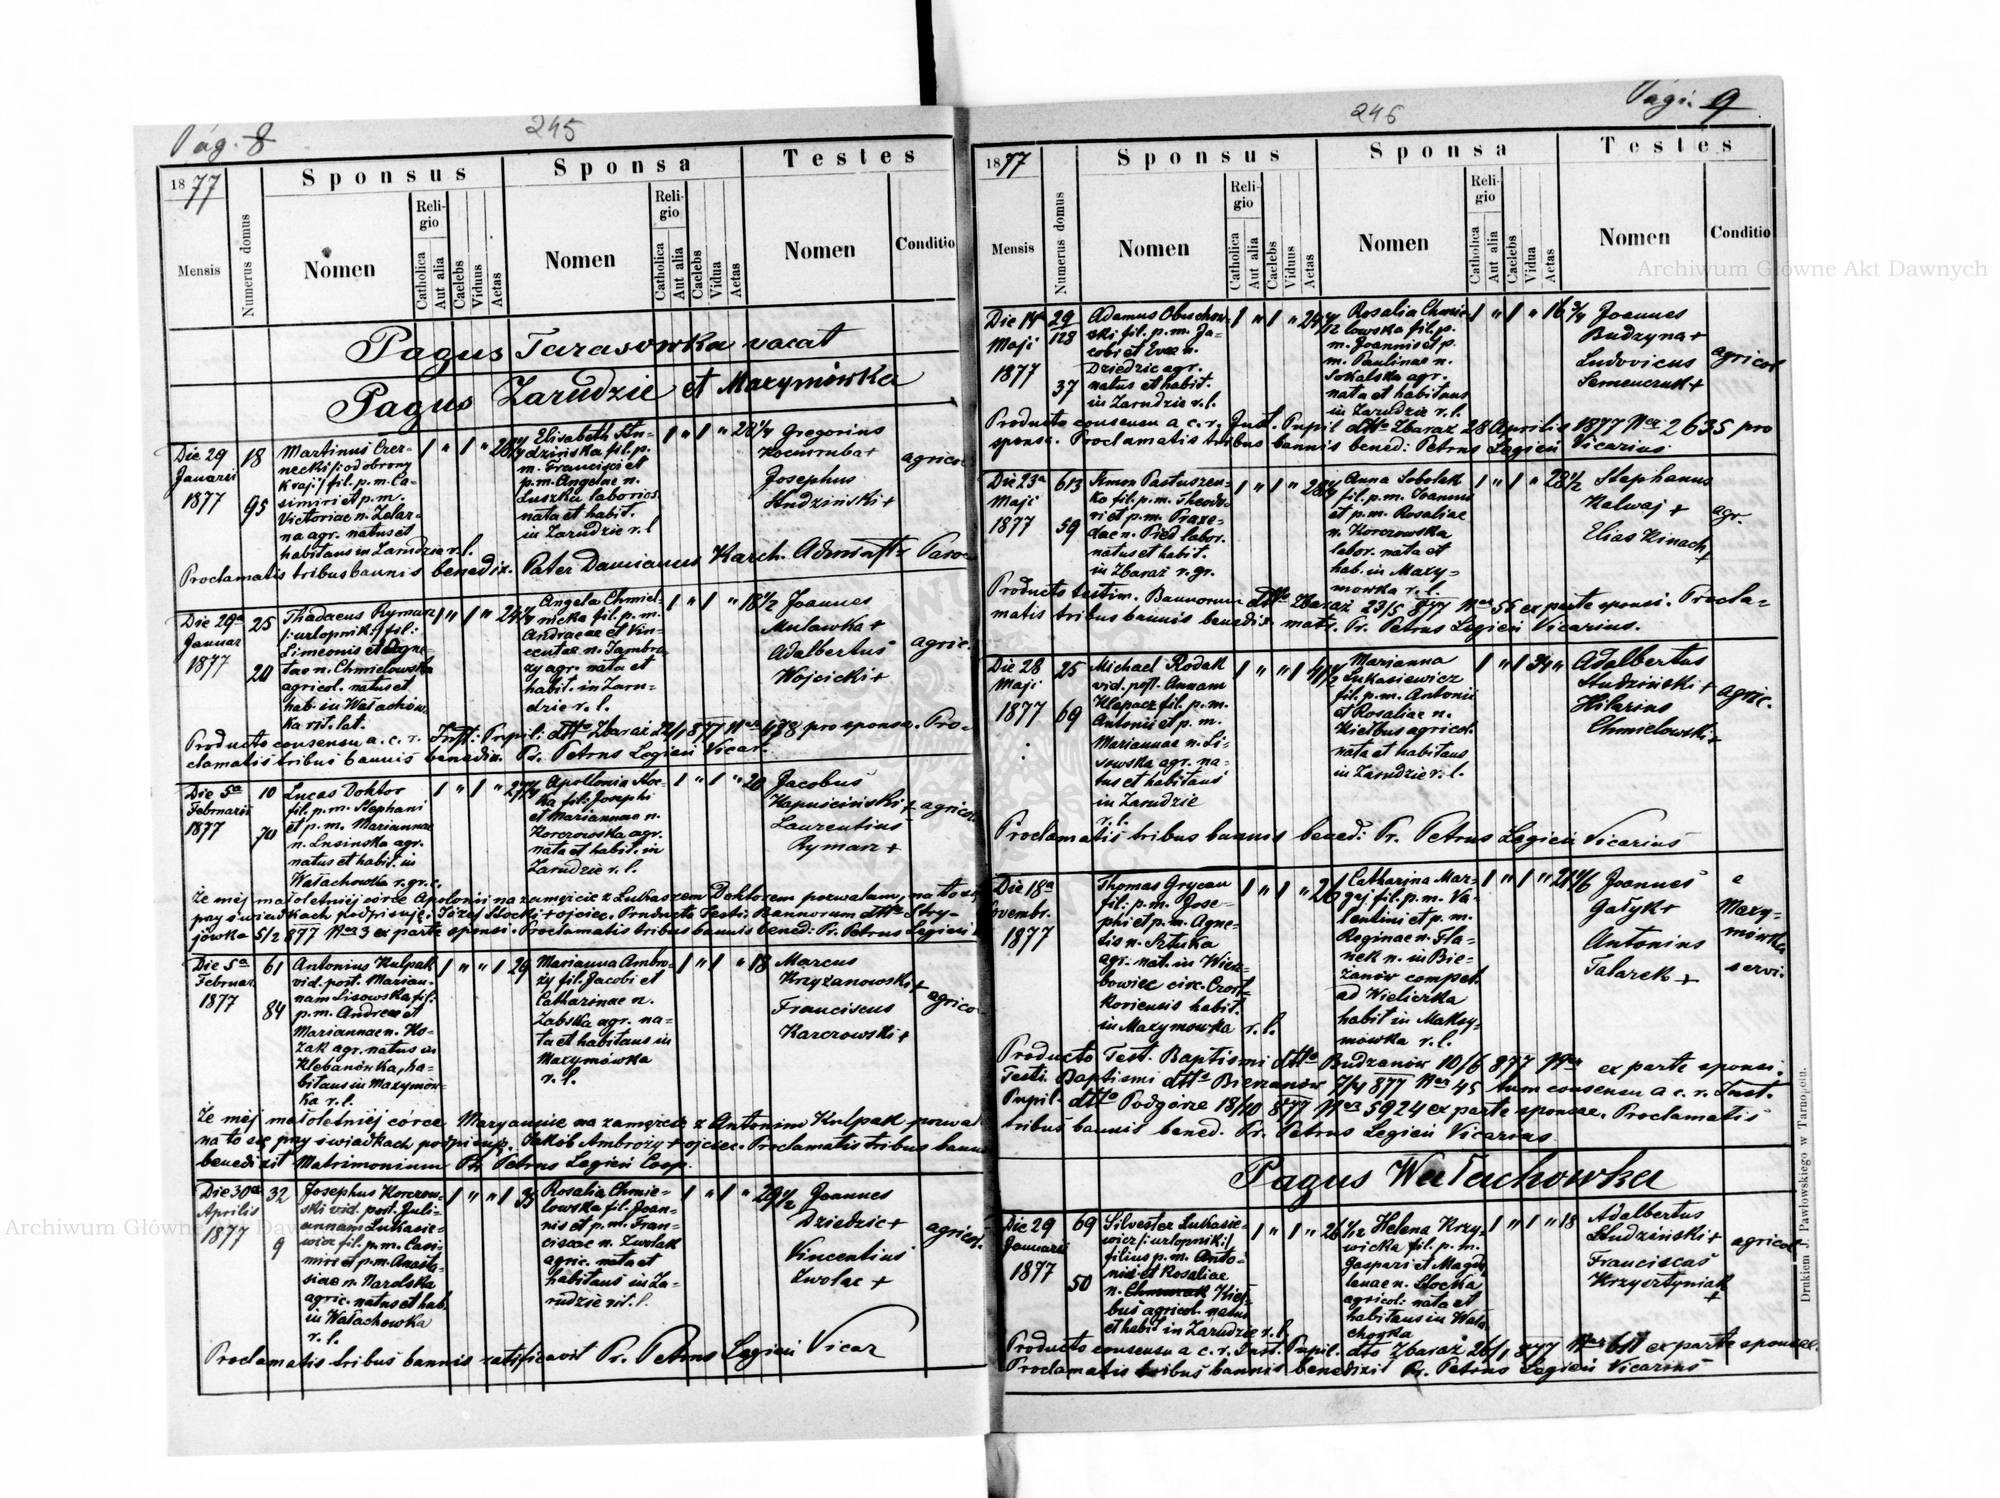 Pag. 8
245
1877
Sponsus
Sponsa
Testes
Mensis
Numerus domus
Nomen
Religio
Catholica
Aut alia
Caelebs
Viduus
Aetas
Nomen
Religio
Catholica
Aut alia
Caelebs
Vidua
Aetas
Nomen
Conditio
Pagus Tarasowka vacat
Pagus Zarudzie et Maxymówka
Die 29
Januarii
1877
18
95
Martinus Czer-
necki /: od obrony
Kraj:/ fil. p. m. Ca-
simiri et p. m.
Victoriae n.
na agr. natus et
habitans in Zarudzie r. l.
Elisabeth Stu-
dzińska fil. p.
m. Francisci et
p. m. Angelae n.
Luszka laborios.
nata et habit.
in Zarudzie r. l
Gregorius
Josephus
Studzinski +
agricol
Proclamatis tribus bannis benedix. Pater Damianus Karch.
Die 29a
Januar
1877
25
20
Thadaeus Rymarz
/: urlopnik :/ fil:
Simeonis et Agne-
tae n. Chmielowska
agricol. natus et
hab. in Wałachów-
ka rit. lat.
Angela Chmiel-
nicka fil. p. m.
Andreae et Vin-
centae n. Jambro-
zy agr. nata et
habit. in Zaru-
dzie r. l.
18 1/2
Joannes
Mulawka +
Adalbertus
Wojcicki +
agric.
Producto consensu a. c. r. Inst: Pupil: dtto Zbaraż 22/1 877 Ner 438 pro sponsa. Pro-
clamatis tribus bannis benedix. Pr. Petrus Legień Vicar.
Die 5a
Februarii
1877
10
70
Lucas Doktor
fil. p. m. Stephani
et p. m. Mariannae
n. Lusinska agr.
natus et habit. in
Wałachowka r. gr. c.
Apollonia Stoc-
ka fil: Josephi
et Mariannae n.
Korczowska agr.
nata et habit. in
Zarudzie r. l.
20
Jacobus
Kapuściński +
Laurentius
Rymarz +
agricol.
Że mej małoletniej córce Apolonii na zamęście z Łukaszem Doktorem pozwalam, na to się
przy świadkach podpisuję. Józef Stocki + ojciec. Producto Testi: Bannorum dtto Stry-
jówka 5/2 877 Ner 3 ex parte sponsi. Proclamatis tribus bannis bened: Pr. Petrus Legień
Die 5a
Februar.
1877
61
84
Antonius Kulpak
vid. post. Marian-
nam Lisowska fil:
p. m. Andreae et
Mariannae n. Ko-
zak agr. natus in
Klebanówka, ha-
bitans in Maxymów-
ka r. l.
29
Marianna Ambro-
zy fil. Jacobi et
Catharinae n.
Zabska agr. na-
ta et habitans in
Maxymówka
r. l.
18
Marcus
Krzyzanowski +
Franciscus
Karczowski +
agricol
Że mej małoletniej córce Maryannie na zamęście z Antonim Kulpak pozwal
na to się przy świadkach podpisuję. Jakób Ambroży + ojciec. Proclamatis tribus bann
benedixit Matrimonium Pr. Petrus Legień Coop.
Die 30a
Aprilis
1877
32
9
Josephus Korczow-
ski vid. post. Juli-
annam Lukasie-
wicz fil. p. m. Casi-
miri et p. m. Anasta-
siae n. Narolska
agric. natus et hab.
in Wałachowka
r. l.
Rosalia Chmie-
lowska fil. Joan-
nis et p. m. Fran-
ciscae n. Zwolak
agric. nata et
habitans in Za-
rudzie rit. l.
29 1/2
Joannes
Dziedzic +
Vincentius
Zwolac +
agricol.
Proclamatis tribus bannis ratificavit Pr. Petrus Legień Vicar
Pagi. 9
246
1877
Sponsus
Sponsa
Testes
Mensis
Numerus domus
Nomen
Religio
Catholica
Aut alia
Caelebs
Viduus
Aetas
Nomen
Religio
Catholica
Aut alia
Caelebs
Vidua
Aetas
Nomen
Conditio
Die 14a
Maji
1877
29
128
37
Adamus Obuchow-
ski fil. p. m. Ja-
cobi et Evae n.
Dziedzic agr.
natus et habit.
in Zarudzie r. l.
Rosalia Chmie-
lowska fil. p.
m. Joannis et p.
m. Paulinae n.
Sokalska agr.
nata et habitans
in Zarudzie r. l.
16 3/4
Joannes
Budzyna +
Ludovicus
Semenczuk +
agricol
Producto consensu a c. r. Inst. Pupil dtto Zbaraz 28 Aprilis 1877 Ner 2635 pro
sponsa. Proclamatis tribus bannis bened: Petrus Legień Vicarius
Die 23a
Maji
1877
613
59
Simon Pastuszen-
ko fil. p. m. Theodo-
ri et p. m. Praxe-
dae n. Pied labor.
natus et habit.
in Zbaraż r. gr.
Anna Sobolak
fil. p. m. Joannis
et p. m. Rosaliae
n. Korczowska
labor. nata et
hab. in Maxy-
mowka r. l.
28 1/2
Stephanus
Kalwaj +
Elias Kinach
+
agr.
Producto testim. Bannorum dtto Zbaraż 23/5 877 Ner 56 ex parte sponsi. Procla-
matis tribus bannis benedix. matr. Pr. Petrus Legień Vicarius.
Die 28
Maji
1877
25
69
Michael Rodak
vid. post. Annam
Klapacz fil. p. m.
Antonii et p. m.
Mariannae n. Li-
sowska agr. na-
tus et habitans
in Zarudzie
r. l.
Marianna
Lukasiewicz
fil. p. m. Antonii
et Rosaliae n.
Kielbus agricol.
nata et habitans
in Zarudzie r. l.
34
Adalbertus
Studziński +
Hilarius
Chmielowski +
agric.
Proclamatis tribus bannis bened: Pr. Petrus Legień Vicarius
Die 18a
Novembr.
1877
Thomas Grycan
fil: p. m. Jose-
phi et p. m. Agne-
tis n. Sztuka
agr. nat. in Wierz-
bowiec circ. Czort-
koviensis habit.
in Maxymowka r. l.
26
Catharina Mar-
gej fil. p. m. Va-
lentini et p. m.
Reginae n. Fla-
nek n. in Bie-
żanów compet.
ad Wieliczka
habit in Maksy-
mówka r. l.
Joannes
Gałyk +
Antonius
Talarek +
e
Maxy-
mówka
servi.
Producto Test. Baptismi dtto Budzanów 10/6 877 Ner ex parte sponsi.
Testi. Baptismi dtto Bierzanów 7/4 877 Ner 45 tum consensu a c. r. Inst.
Pupil. dtto Podgórze 18/10 877 Ner 5924 ex parte sponsae. Proclamatis
tribus bannis bened. Pr. Petrus Legień Vicarius.
Pagus Wałachowka
Die 29
Januarii
1877
69
50
Silvester Lukasie-
wicz /: urlopnik :/
filius p. m. Anto-
nii et Rosaliae
n. Kieł-
bus agricol. natus
et habit in Zarudzie r. l
26 1/12
Helena Krzy-
wicka fil. p. m.
Gaspari et Magda-
lenae n. Stocka
agricol: nata et
habitans in Wała-
chowka
18
Adalbertus
Studziński +
Franciscus
Krzysztyniak
+
agricol
Producto consensu a c. r. Inst. Pupil. dto Zbaraż 26/1 877 Ner 611 ex parte sponsae.
Proclamatis tribus bannis benedixit Pr. Petrus Legień Vicarius
Drukiem J. Pawłowskiego w Tarnopolu.
Archiwum Główne Akt Dawnych
Archiwum Główne Akt Dawnych